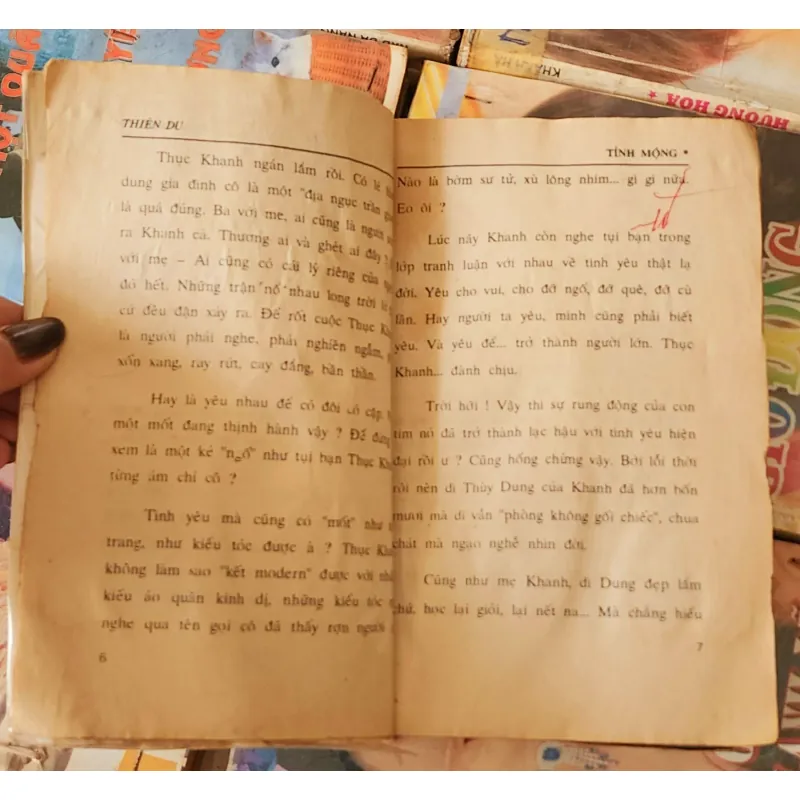 THIÊN DU
Thục Khanh ngán lắm rồi. Có lẽ
dung gia đình cô là một "địa ngục trần
là quá đúng. Ba với mẹ, ai cũng là người
ra Khanh cả. Thương ai và ghét ai đây ?
với mẹ – Ai cũng có cái lý riêng của
đó hết. Những trận "nổ" nhau long trời lở
cứ đều đặn xảy ra. Để rốt cuộc Thục
là người phải nghe, phải nghiền ngẫm,
xốn xang, ray rứt, cay đắng, bần thần.
Hay là yêu nhau để có đôi có cặp,
một mốt đang thịnh hành vậy ? Để
xem là một kẻ "ngố" như tụi bạn Thục
từng ám chỉ cô ?
Tình yêu mà cũng có "mốt" như
trang, như kiểu tóc được à ? Thục
không làm sao "kết modern" được với
kiểu áo quần kinh dị, những kiểu tóc
nghe qua tên gọi cô đã thấy rợn người
6
TÌNH MỘNG *
Nào là bờm sư tử, xù lông nhím... gì gì nữa.
Eo ôi ?
Lúc này Khanh còn nghe tụi bạn trong
lớp tranh luận với nhau về tình yêu thật lạ
đời. Yêu cho vui, cho đỡ ngố, đỡ quê, đỡ cù
lần. Hay người ta yêu, mình cũng phải biết
yêu. Và yêu để... trở thành người lớn. Thục
Khanh... đành chịu.
Trời hỡi ! Vậy thì sự rung động của con
tim nó đã trở thành lạc hậu với tình yêu hiện
đại rồi ư ? Cũng hổng chừng vậy. Bởi lỗi thời
rồi nên dì Thùy Dung của Khanh đã hơn bốn
mươi mà dì vẫn "phòng không gối chiếc", chua
chát mà ngạo nghễ nhìn đời.
Cũng như mẹ Khanh, dì Dung đẹp lắm
chứ, học lại giỏi, lại nết na... Mà chẳng hiểu
7
KHÁNH HÀ
HƯƠNG HOA